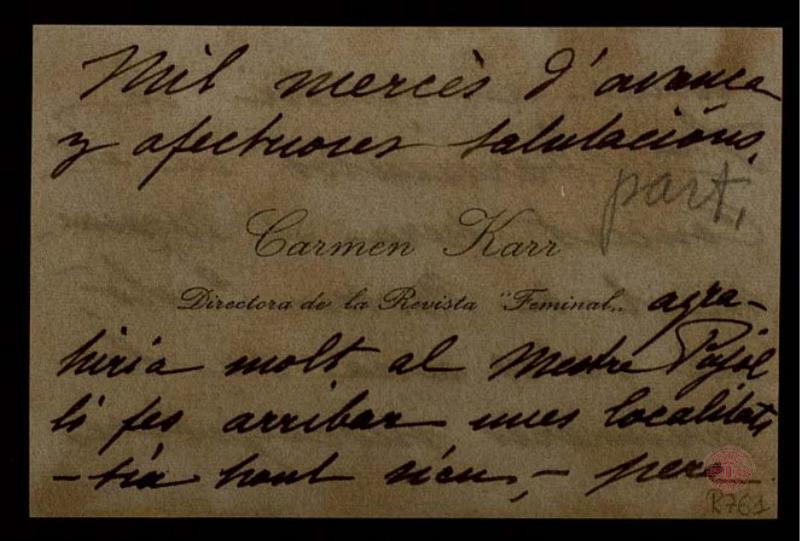 Mil mercès d'avança
y afectuoses salutacións.
part,
Carmen Karr
Directora de la Revista "Feminal„ agra-
hiria molt al Mestre Pujol
li fes arribar unes localitats
- sía hont síen, - pera
R761